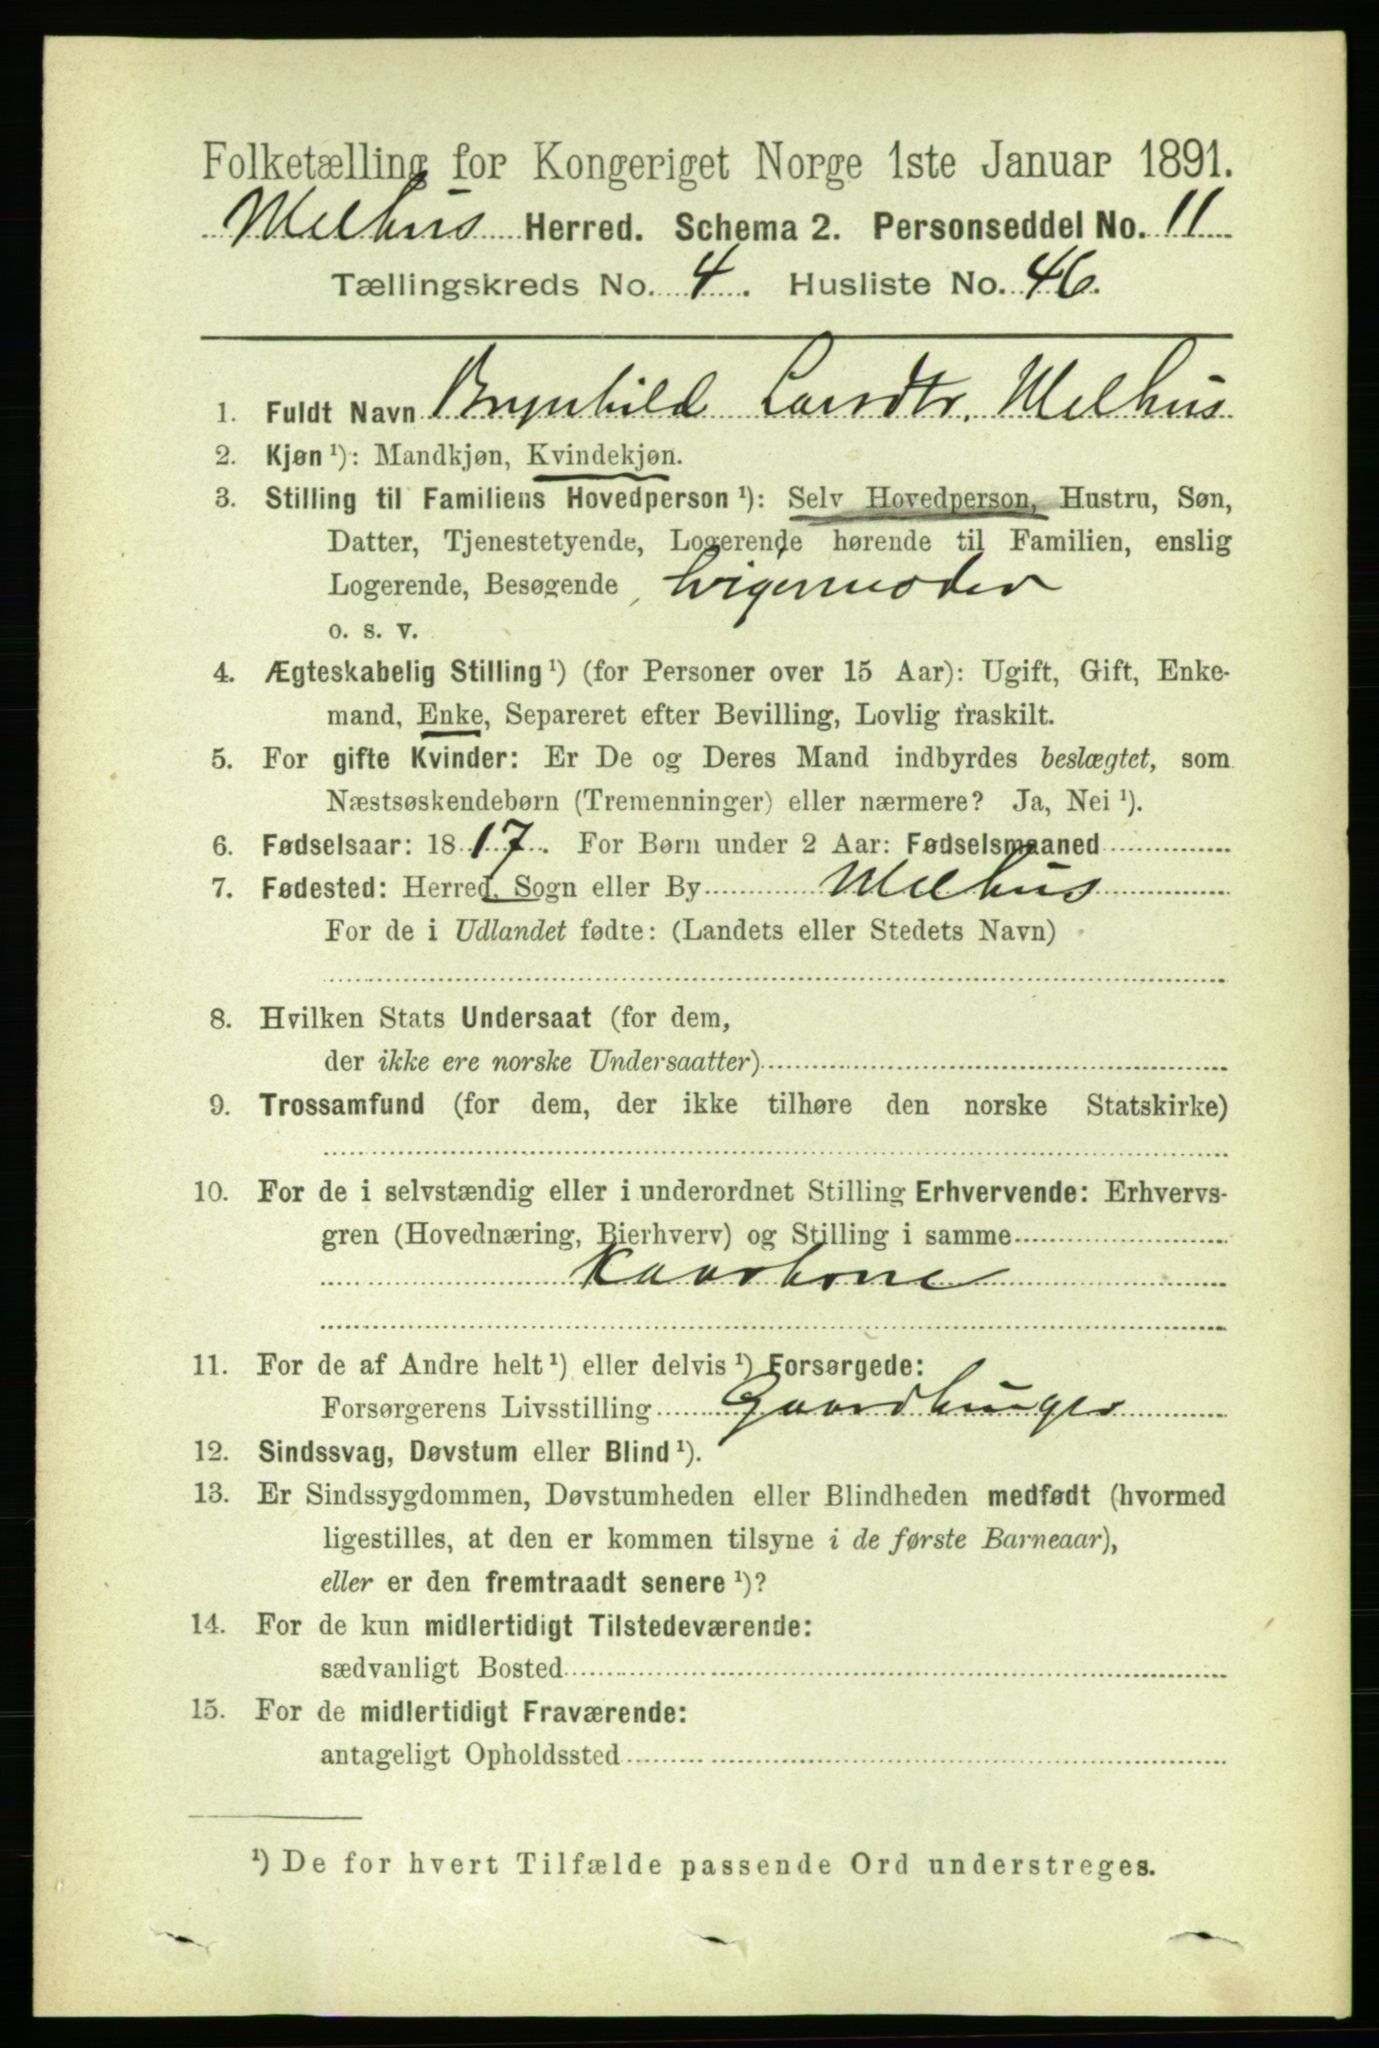 Folketælling for Kongeriget Norge 1ste Januar 1891.
Melhus Herred. Schema 2. Personseddel No. 11
Tællingskreds No. 4. Husliste No. 46.
1. Fuldt Navn Brynhild Larsdtr. Melhus
2. Kjøn ¹): Mandkjøn, Kvindekjøn.
3. Stilling til Familiens Hovedperson ¹): Selv Hovedperson, Hustru, Søn,
Datter, Tjenestetyende, Logerende hørende til Familien, enslig
Logerende, Besøgende, Svigermoder
o. s. v.
4. Ægteskabelig Stilling ¹) (for Personer over 15 Aar): Ugift, Gift, Enke-
mand, Enke, Separeret efter Bevilling, Lovlig fraskilt.
5. For gifte Kvinder: Er De og Deres Mand indbyrdes beslægtet, som
Næstsøskendebørn (Tremenninger) eller nærmere? Ja, Nei ¹).
6. Fødselsaar: 1817. For Børn under 2 Aar: Fødselsmaaned
7. Fødested: Herred, Sogn eller By Melhus
For de i Udlandet fødte: (Landets eller Stedets Navn)
8. Hvilken Stats Undersaat (for dem,
der ikke ere norske Undersaatter)
9. Trossamfund (for dem, der ikke tilhøre den norske Statskirke)
10. For de i selvstændig eller i underordnet Stilling Erhvervende: Erhvervs-
gren (Hovednæring, Bierhverv) og Stilling i samme
Kaarkone
11. For de af Andre helt ¹) eller delvis ¹) Forsørgede:
Forsørgerens Livsstilling Gaardbruger
12. Sindssvag, Døvstum eller Blind ¹).
13. Er Sindssygdommen, Døvstumheden eller Blindheden medfødt (hvormed
ligestilles, at den er kommen tilsyne i de første Barneaar),
eller er den fremtraadt senere ¹)?
14. For de kun midlertidigt Tilstedeværende:
sædvanligt Bosted
15. For de midlertidigt Fraværende:
antageligt Opholdssted
¹) De for hvert Tilfælde passende Ord understreges.